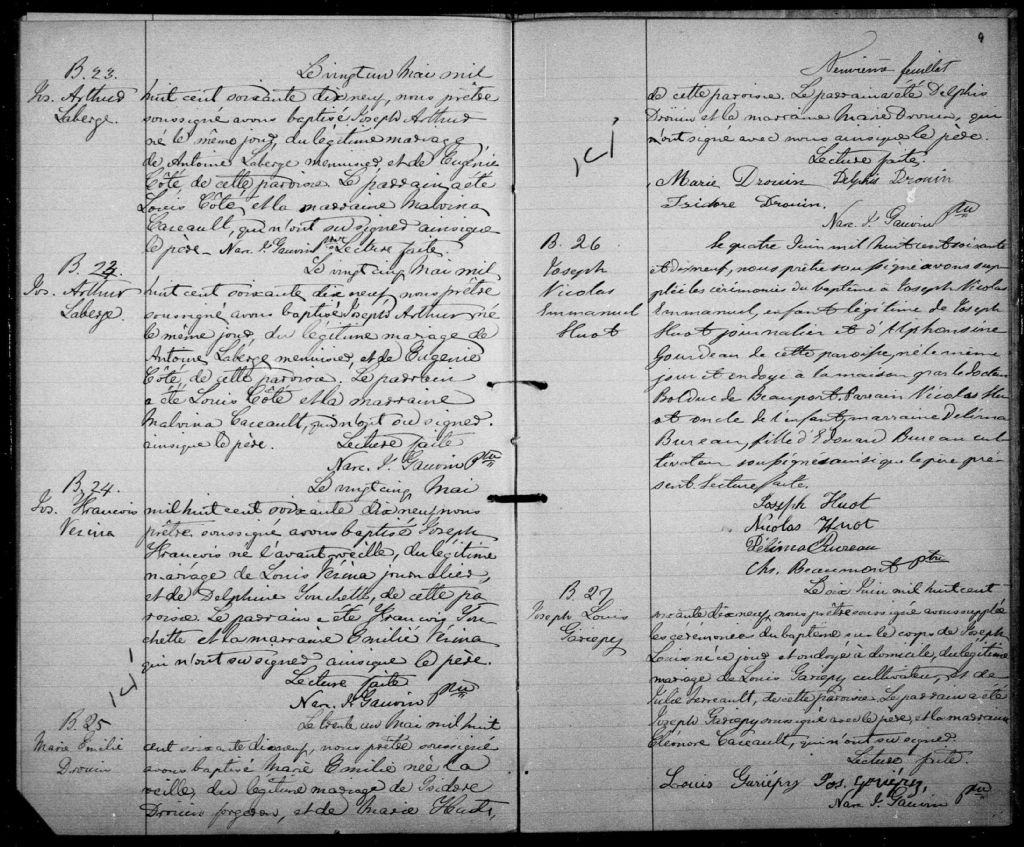 B. 23.
Jos. Arthur
Laberge.
Le vingt un Mai mil
huit cent soixante dix neuf, nous prêtre
soussigné avons baptisé Joseph Arthur
né le même jour, du légitime mariage
de Antoine Laberge menuisier et de Eugénie
Côté, de cette paroisse. Le parrain a été
Louis Côté, et la marraine Malvina
Caceault, qui n'ont su signer ainsi que
le père - Narc. J. Gauvin ptre Lecture faite
B. 23.
Jos. Arthur
Laberge.
Le vingt cinq Mai mil
huit cent soixante dix neuf, nous prêtre
soussigné avons baptisé Joseph Arthur né
le même jour, du légitime mariage de
Antoine Laberge menuisier, et de Eugénie
Côté, de cette paroisse. Le parrain
a été Louis Côté et la marraine
Malvina Caceault, qui n'ont su signer
ainsi que le père. Lecture faite
Narc. J. Gauvin ptre
B. 24.
Jos. François
Verina
Le vingt cinq Mai
mil huit cent soixante dix neuf, nous
prêtre soussigné avons baptisé Joseph
François né l'avant veille, du légitime
mariage de Louis Verina journalier,
et de Delphine Touchette, de cette pa
roisse. Le parrain a été François Tou
chette et la marraine Emilie Verina
qui n'ont su signer ainsi que le père.
Lecture faite
Narc. J. Gauvin ptre
B. 25
Marie Emilie
Drouin
Le trente un Mai mil huit
cent soixante dix neuf, nous prêtre soussigné
avons baptisé Marie Emilie née la
veille, du légitime mariage de Isidore
Drouin forgeron, et de Marie Huot,
9
Neuvième feuillet
de cette paroisse. Le parrain a été Delphis
Drouin et la marraine Marie Drouin, qui
ont signé avec nous ainsi que le père.
Lecture faite.
Marie Drouin Delphis Drouin
Isidore Drouin.
Narc. J. Gauvin ptre
B. 26
Joseph
Nicolas
Emmanuel
Huot
Le quatre Juin mil huit cent soixante
et dix neuf, nous prêtre soussigné avons sup
plée les cérémonies du baptême à Joseph Nicolas
Emmanuel, enfant légitime de Joseph
Huot journalier et d'Alphonsine
Gourdeau de cette paroisse, né le même
jour et ondoyé à la maison par le docteur
Bolduc de Beauport. Parrain Nicolas Hu
ot oncle de l'enfant, marraine Delima
Bureau, fille d'Edouard Bureau cul
tivateur soussignés ainsi que le père pré
sent. Lecture faite.
Joseph Huot
Nicolas Huot
Délima Bureau
Chs. Beaumont ptre
B. 27
Joseph Louis
Gariépy
Le dix Juin mil huit cent
soixante dix neuf, nous prêtre soussigné avons supplée
les cérémonies du baptême sur le corps de Joseph
Louis né ce jour et ondoyé à domicile, du légitime
mariage de Louis Gariépy cultivateur, et de
Julie Verreault, de cette paroisse. Le parrain a été
Joseph Gariépy soussigné avec le père, et la marraine
Eléonore Caceault, qui n'ont su signer.
Lecture faite.
Louis Gariépy Jos. Gariépy,
Narc. J. Gauvin ptre